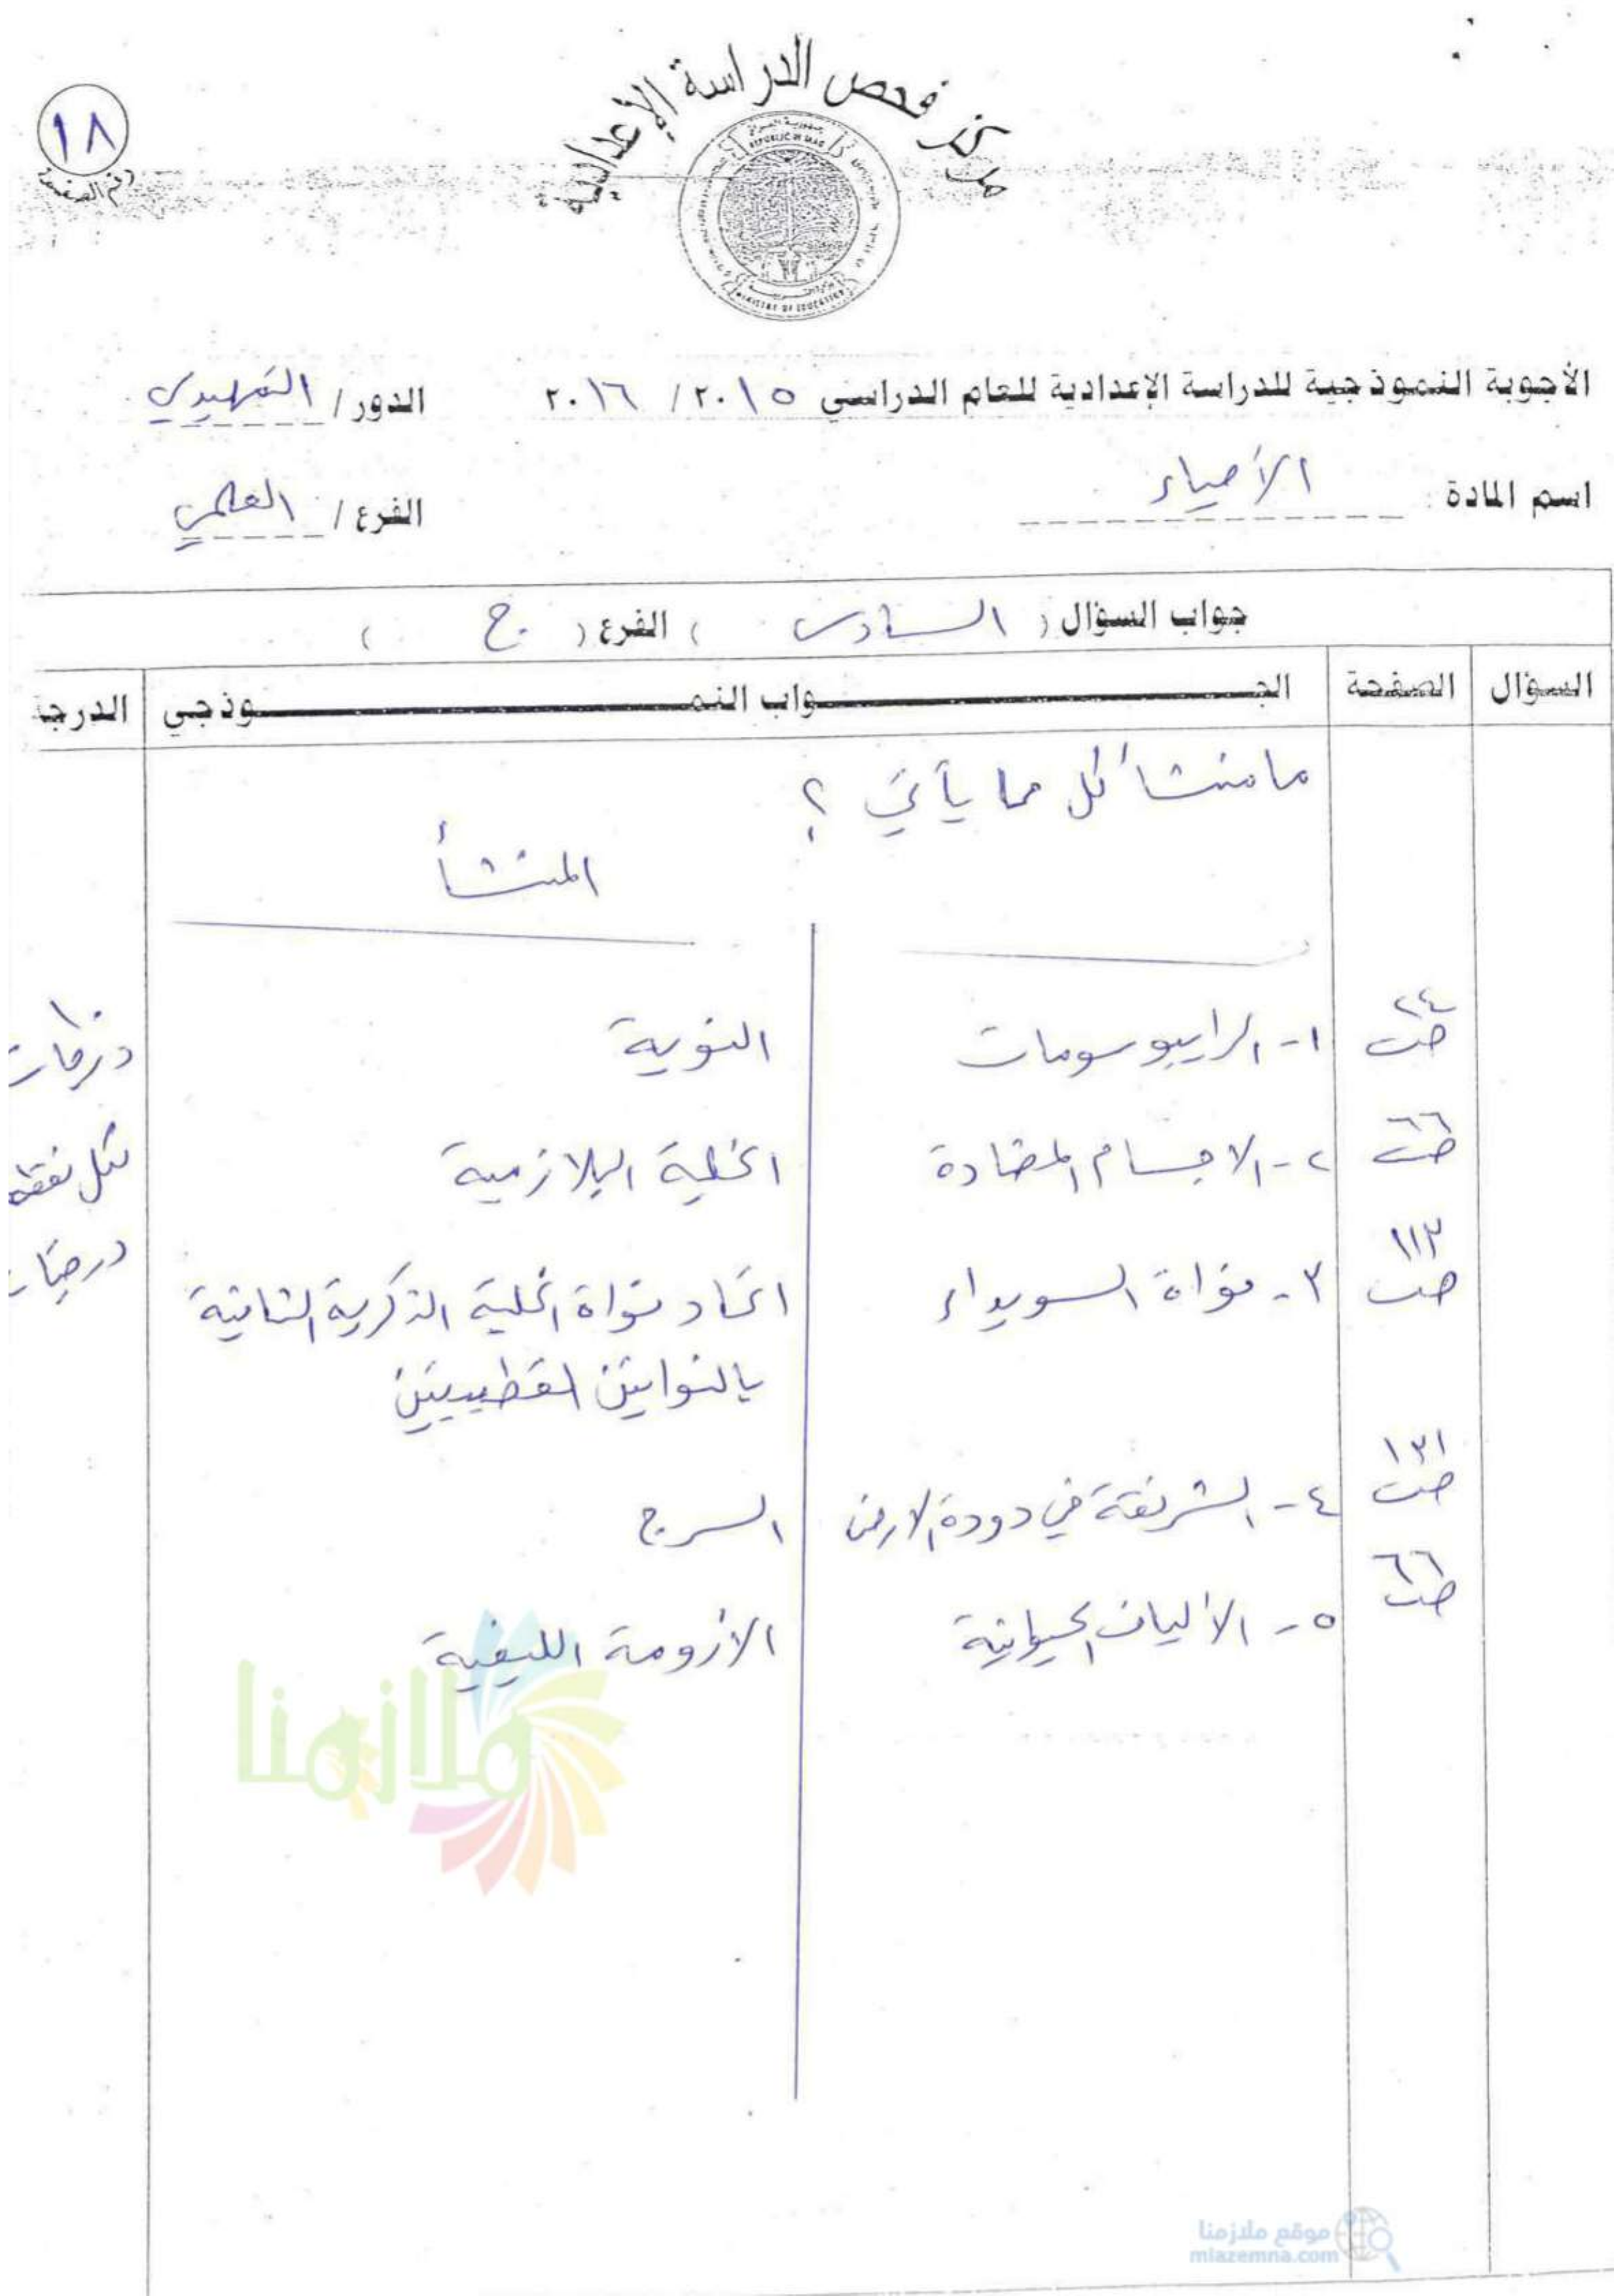 مركز فحص الدراسة الإعدادية
جمهورية العراق
REPUBLIC OF IRAQ
MINISTRY OF EDUCATION
١٨
رقم الصفحة
الأجوبة النموذجية للدراسة الإعدادية للعام الدراسي ٢٠١٥ / ٢٠١٦ الدور / التمهيدي
اسم المادة : الأحياء الفرع / العلمي
جواب السؤال ( السادس ) الفرع ( ج )
السؤال الصفحة الجـــواب النمـــوذجي الدرجة
ما منشأ كل مما يأتي ؟
المنشأ
ص٢٤ ١- الرايبوسومات النوية ١٠ درجات
ص٦٦ ٢- الاجسام المضادة الخلية البلازمية لكل نقطة
ص١١٣ ٣- نواة السويداء اتحاد نواة الخلية الذكرية الثانية درجتان
بالنواتين القطبيتين
ص١٣١ ٤- الشرنقة في دودة الارض السرج
ص٦٦ ٥- الألياف الحيوانية الأرومة الليفية
ملازمنا
موقع ملازمنا
mlazemna.com